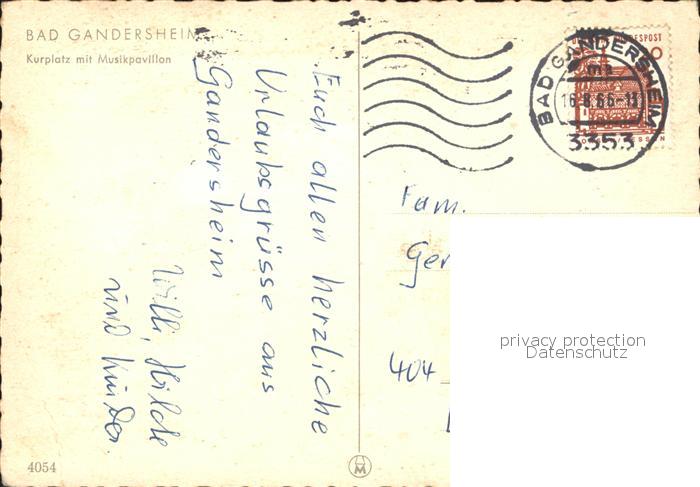 BAD GANDERSHEIM
Kurplatz mit Musikpavillon
Euch allen herzliche
Urlaubsgrüsse aus
Gandersheim
Willi, Hilde
und Kinder.
BAD GANDERSHEIM
16.8.66
3353
BUNDESPOST
Fam.
Ger
404
privacy protection
Datenschutz
4054